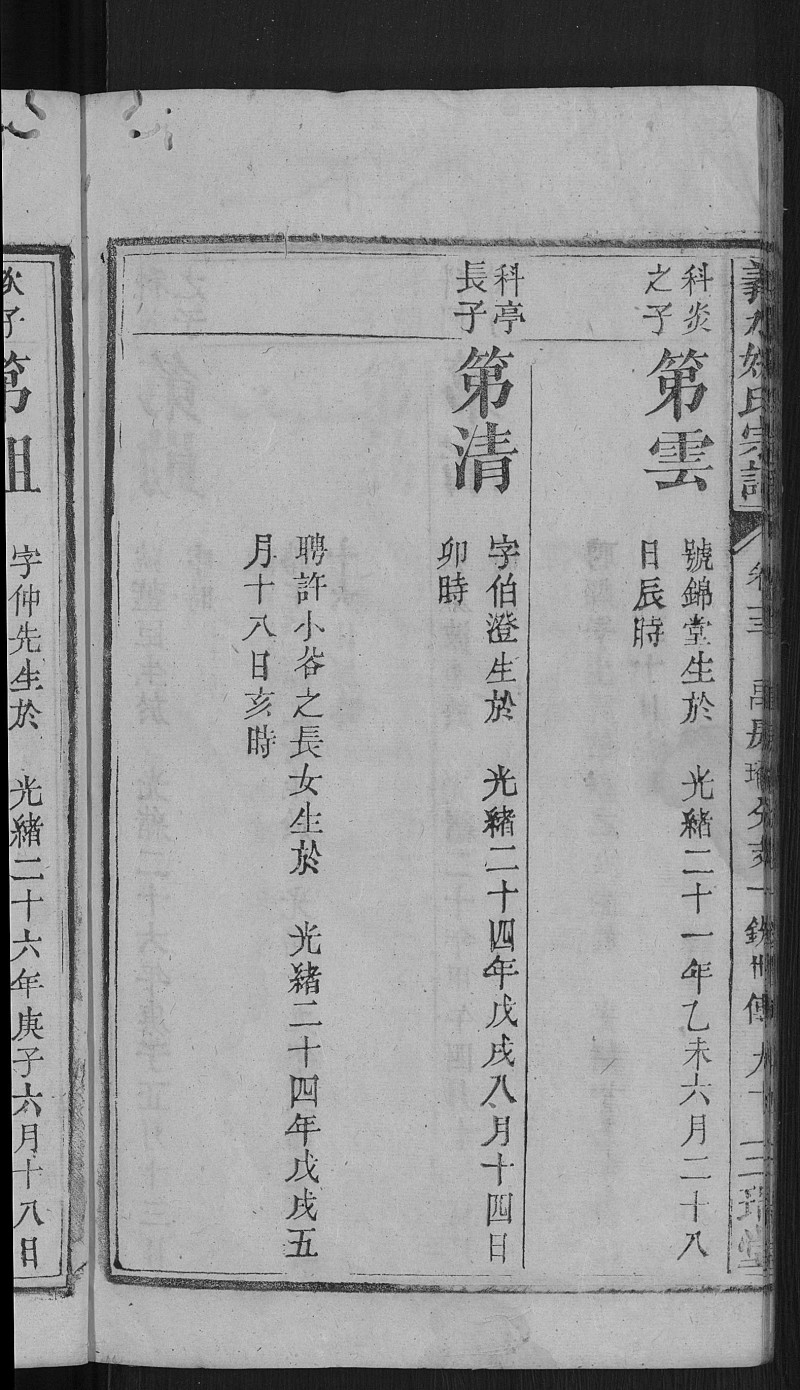 科炎
之子
第雲
號錦堂生於 光緒二十一年乙未六月二十八
日辰時
科亭
長子
第清
字伯澄生於 光緒二十四年戊戌八月十四日
卯時
聘許小谷之長女生於 光緒二十四年戊戌五
月十八日亥時
次子
字仲先生於 光緒二十六年庚子六月十八日